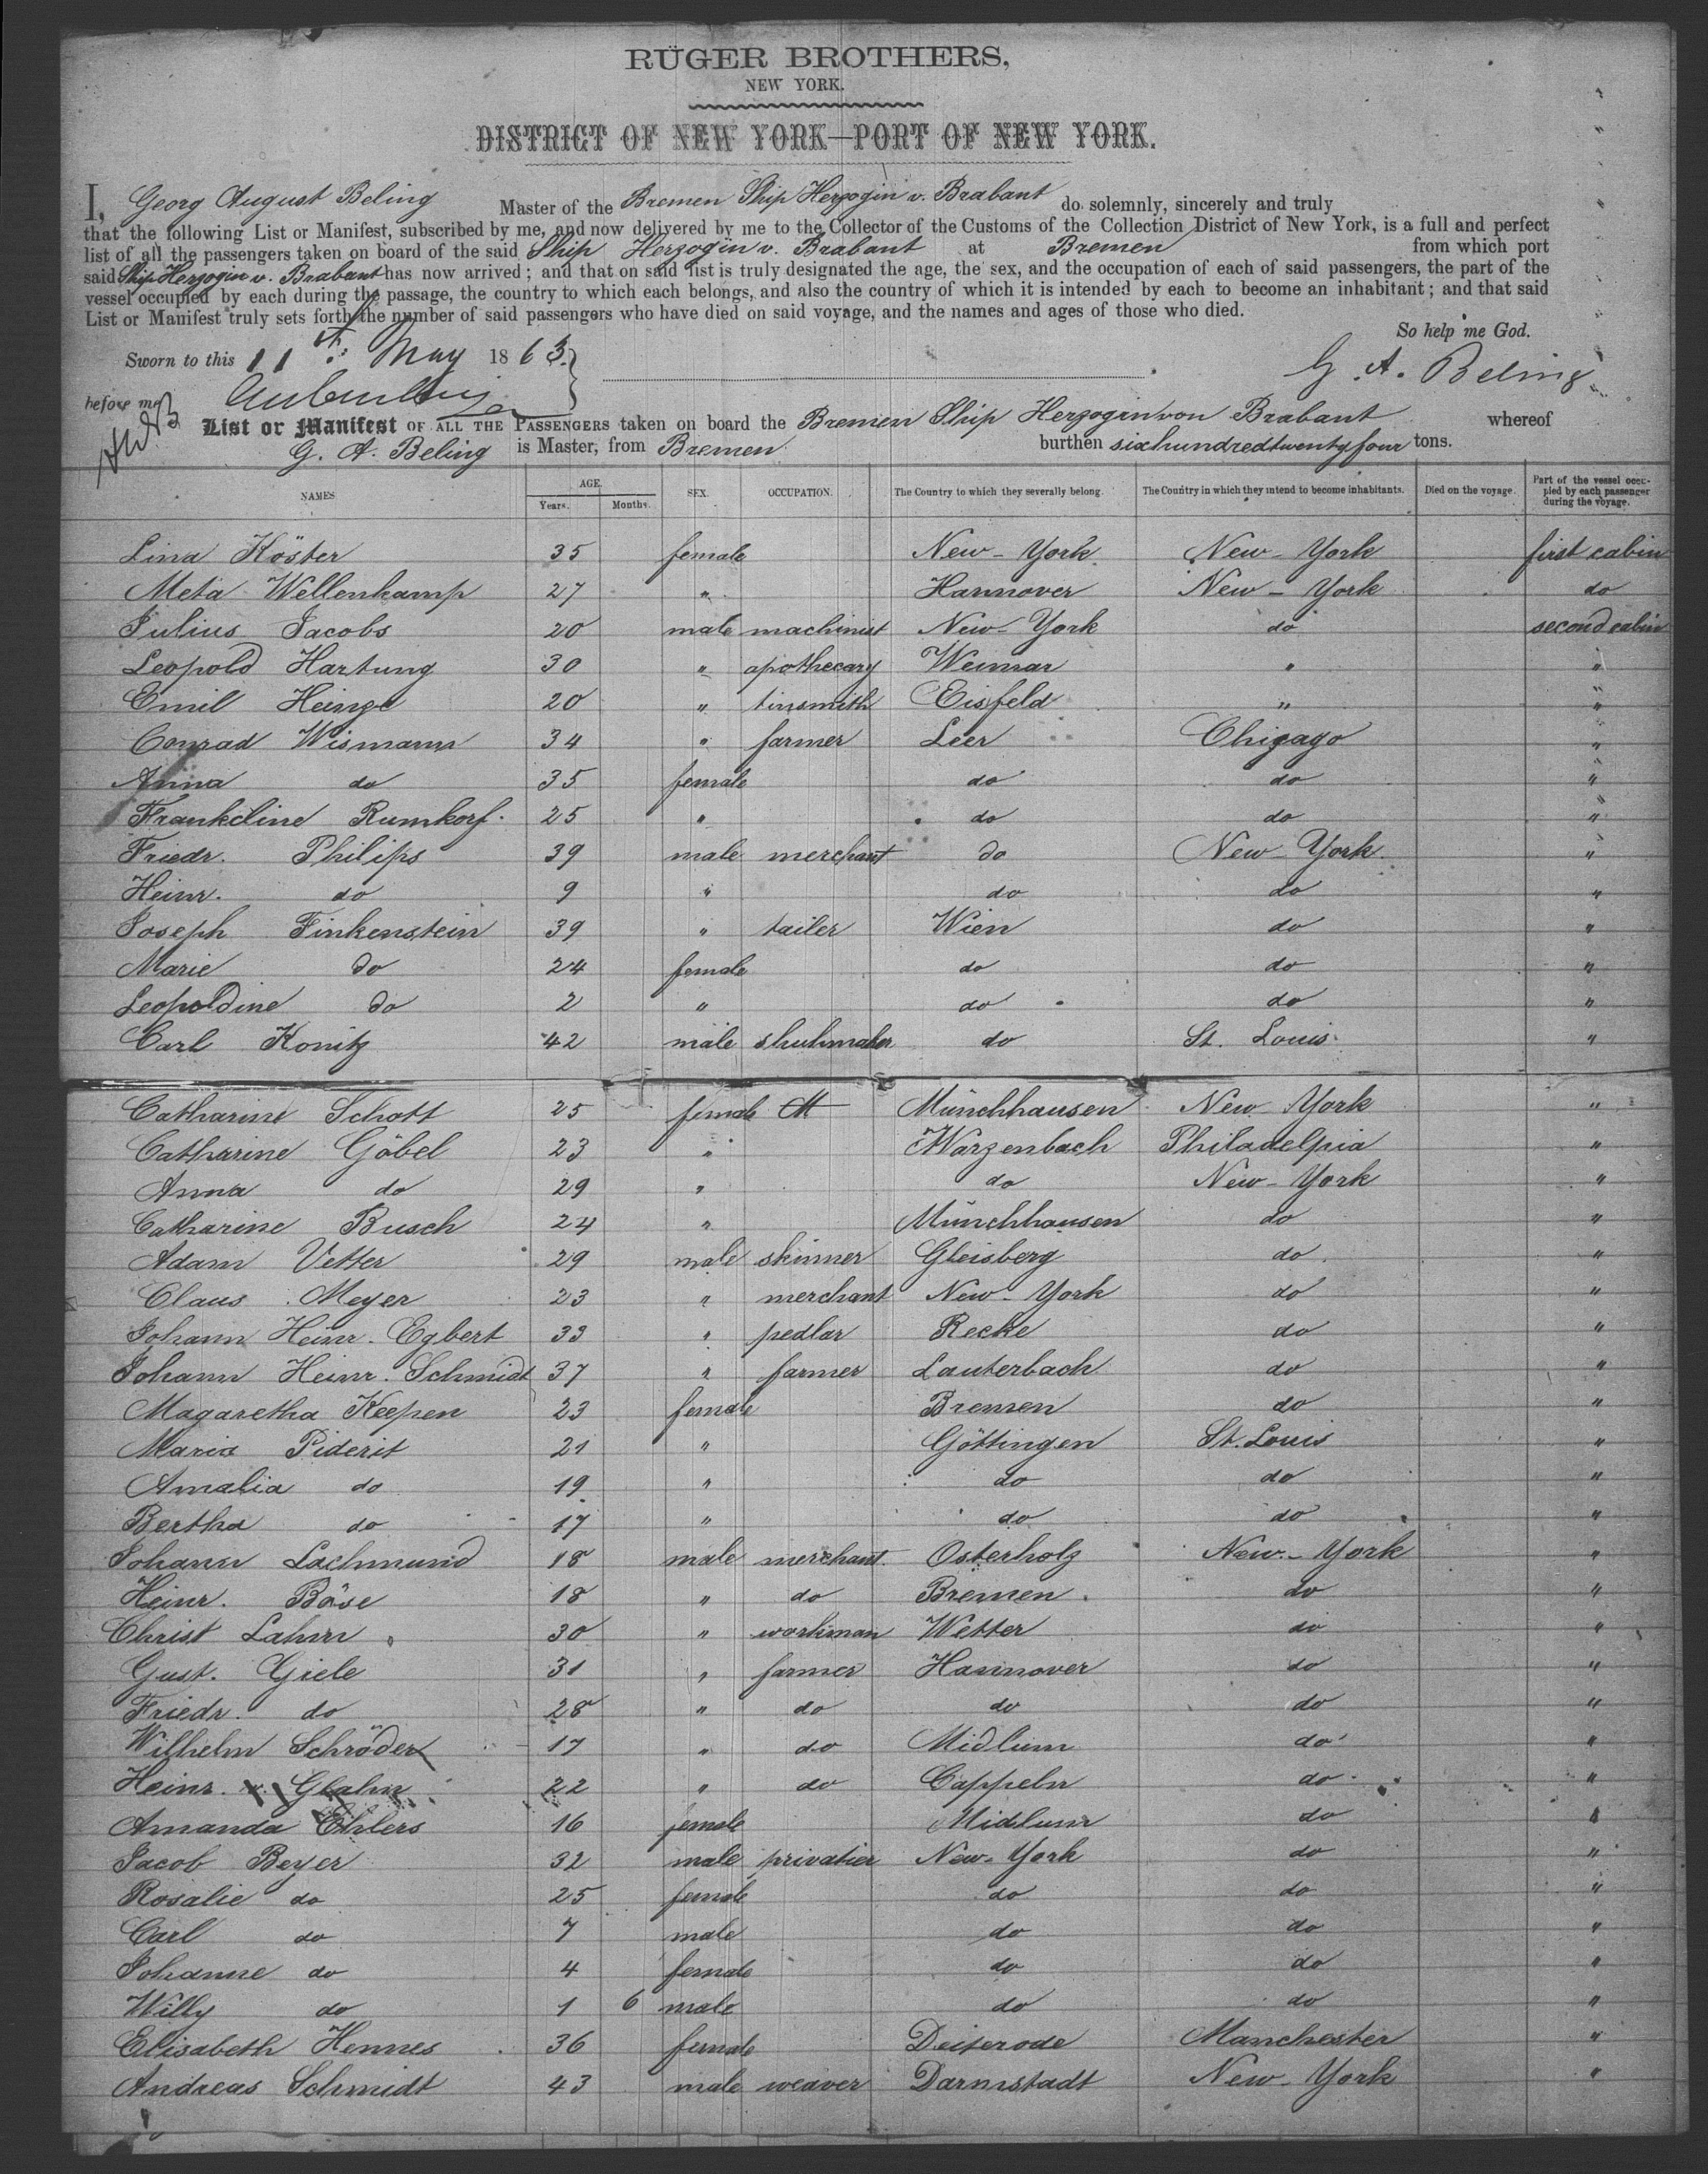 RÜGER BROTHERS,
NEW YORK.
DISTRICT OF NEW YORK—PORT OF NEW YORK.
I, Georg August Beling Master of the Bremen Ship Herzogin v. Brabant do solemnly, sincerely and truly
that the following List or Manifest, subscribed by me, and now delivered by me to the Collector of the Customs of the Collection District of New York, is a full and perfect
list of all the passengers taken on board of the said Ship Herzogin v. Brabant at Bremen from which port
said Ship Herzogin v. Brabant has now arrived; and that on said list is truly designated the age, the sex, and the occupation of each of said passengers, the part of the
vessel occupied by each during the passage, the country to which each belongs, and also the country of which it is intended by each to become an inhabitant; and that said
List or Manifest truly sets forth the number of said passengers who have died on said voyage, and the names and ages of those who died.
So help me God.
Sworn to this 11th May 1863. G. A. Beling
before me
List or Manifest OF ALL THE PASSENGERS taken on board the Bremen Ship Herzogin von Brabant whereof
G. A. Beling is Master, from Bremen burthen sixhundredtwentyfour tons.
NAMES AGE. Years. Months. SEX. OCCUPATION. The Country to which they severally belong. The Country in which they intend to become inhabitants. Died on the voyage. Part of the vessel occupied by each passenger during the voyage.
Lina Köster 35 female New-York New-York first cabin
Meta Wellenkamp 27 " Hannover New-York do
Julius Jacobs 20 male machinist New-York do second cabin
Leopold Hartung 30 " apothecary Weimar " "
Emil Heinze 20 " tinsmith Eisfeld " "
Conrad Wismann 34 " farmer Leer Chigago "
Anna do 35 female do do "
Frankeline Rumkorf. 25 " do do "
Friedr. Philips 39 male merchant do New-York. "
Heinr. do 9 " do do "
Joseph Finkenstein 39 " tailer Wien do "
Marie do 24 female do do "
Leopoldine do 2 " do do "
Carl Konitz 42 male shuhmaker do St. Louis "
Catharine Schott 25 female M Münchhausen New York "
Catharine Göbel 23 " Warzenbach Philadelpia "
Anna do 29 " do New-York "
Catharine Busch 24 " Münchhausen do "
Adam Vetter 29 male skinner Gleisberg do "
Claus Meyer 23 " merchant New-York do "
Johann Heinr. Egbert 33 " pedlar Recke do "
Johann Heinr. Schmidt 37 " farmer Lauterbach do "
Magaretha Keepen 23 female Bremen do "
Maria Piderit 21 " Göttingen St. Louis "
Amalia do 19 " do do "
Bertha do 17 " do do "
Johann Lachmund 18 male merchant Osterholz New-York "
Heinr. Böse 18 " do Bremen do "
Christ Lahm 30 " workman Wetter do "
Gust. Giele 31 " farmer Hannover do "
Friedr. do 28 " do do do "
Wilhelm Schröder 17 " do Midlum do "
Heinr. Glahn 22 " do Cappeln do "
Amanda Ehlers 16 female Midlum do "
Jacob Beyer 32 male privatier New-York do "
Rosalie do 25 female do do "
Carl do 7 male do do "
Johanne do 4 female do do "
Willy do 1 6 male do do "
Elisabeth Hennes 36 female Deiterode Manchester "
Andreas Schmidt 43 male weaver Darmstadt New-York "